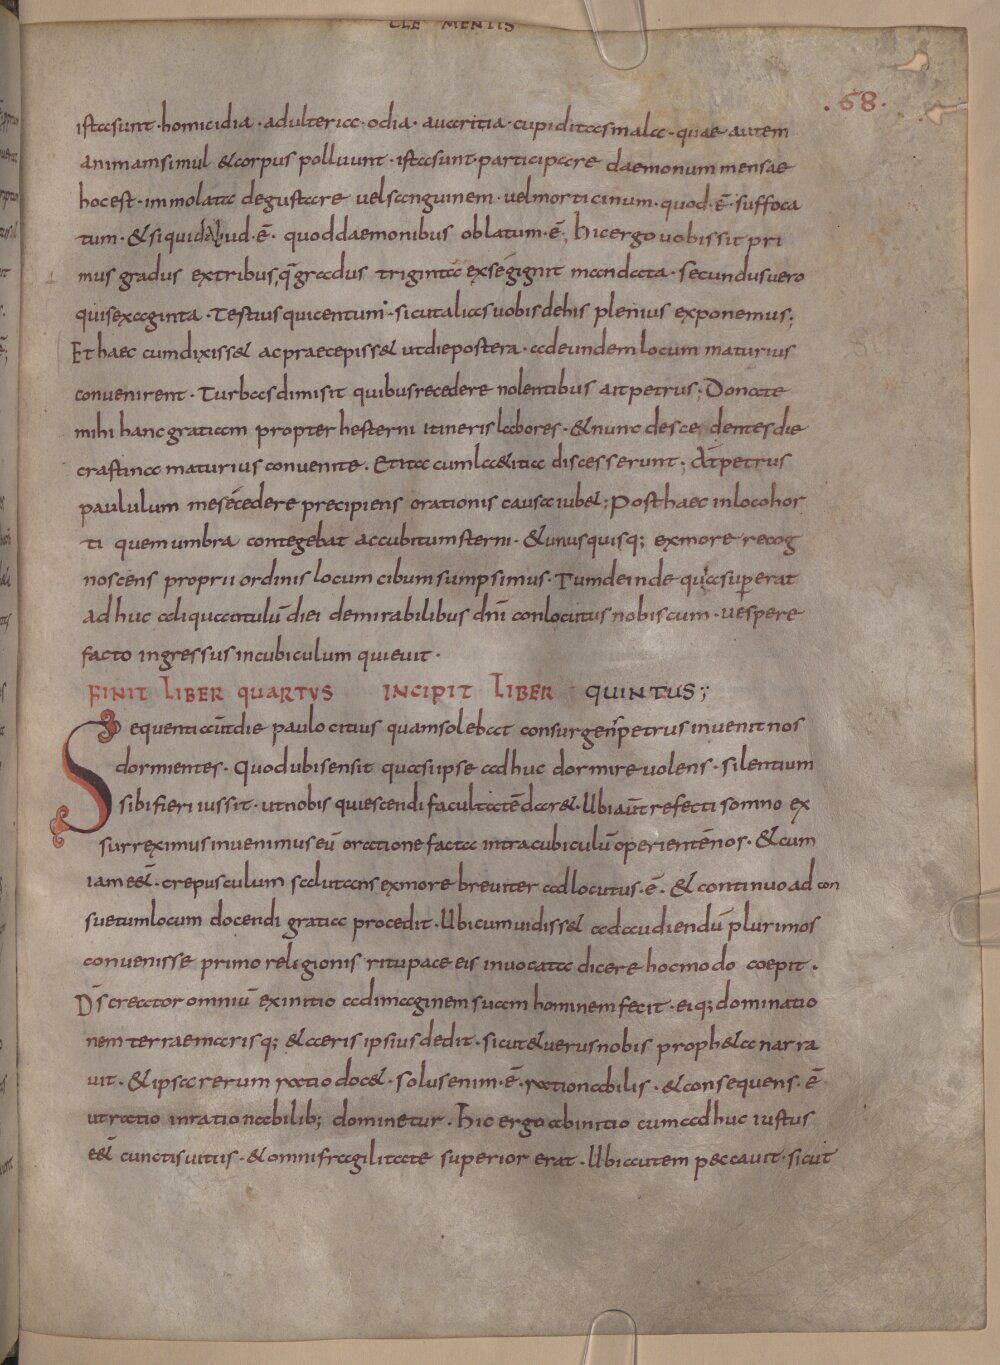 CLEMENTIS
.68.
ista sunt · homicidia · adulteria · odia · auaritia · cupiditas mala · quae autem
animam simul & corpus polluunt · ista sunt participare daemonum mensae
hoc est · immolata degustare uel sanguinem · uel morticinum · quod · ē · suffoca
tum · & siquid aliud · ē · quod daemonibus oblatum · ē, hic ergo uobis sit pri
mus gradus ex tribus, q̄ gradus triginta ex se gignit mandata · secundus uero
qui sexaginta · Tertius qui centum · sicut alias uobis de his plenius exponemus;
Et haec cum dixiss& ac praecepiss& ut die postera · ad eundem locum maturius
conuenirent · Turbas dimisit quibus recedere nolentibus ait petrus; Donate
mihi hanc gratiam propter hesterni itineris labores · & nunc desce dentes die
crastina maturius conuenite. Et ita cum laetitia discesserunt; At petrus
paululum me secedere precipiens orationis causa iub&; Post haec in loco hor
ti quem umbra contegebat accubitum sterni · & unusquisq; ex more recog
noscens proprii ordinis locum cibum sumpsimus · Tum deinde quia superat
ad huc aliquantulū diei de mirabilibus dn̄i conlocutus nobiscum · uespere
facto ingressus in cubiculum quieuit ·
FINIT LIBER QUARTVS INCIPIT LIBER QUINTUS;
Sequenti aūt die paulo citius quam solebat consurgens petrus inuenit nos
dormientes · Quod ubi sensit quasi ipse adhuc dormire uolens · silentium
sibi fieri iussit · ut nobis quiescendi facultatē dar& · Ubi aūt refecti somno ex
surreximus inuenimus eū oratione facta intra cubiculū operientē nos · & cum
iam ess& · crepusculum salutans ex more breuiter adlocutus · ē · & continuo ad con
suetum locum docendi gratia procedit · Ubi cum uidiss& ad audiendū plurimos
conuenisse primo religionis ritu pace eis inuocata dicere hoc modo coepit ·
Ds̄ creator omniū ex initio ad imaginem suam hominem fecit · eiq; dominatio
nem terrae marisq; & aeris ipsius dedit · sicut & uerus nobis proph&a narra
uit · & ipsa rerum ratio doc& · solus enim · ē · rationabilis · & consequens · ē
ut ratio inrationabilib; dominetur · Hic ergo ab initio cum adhuc iustus
ess& cunctis uitiis · & omni fragilitate superior erat · Ubi autem peccauit · sicut